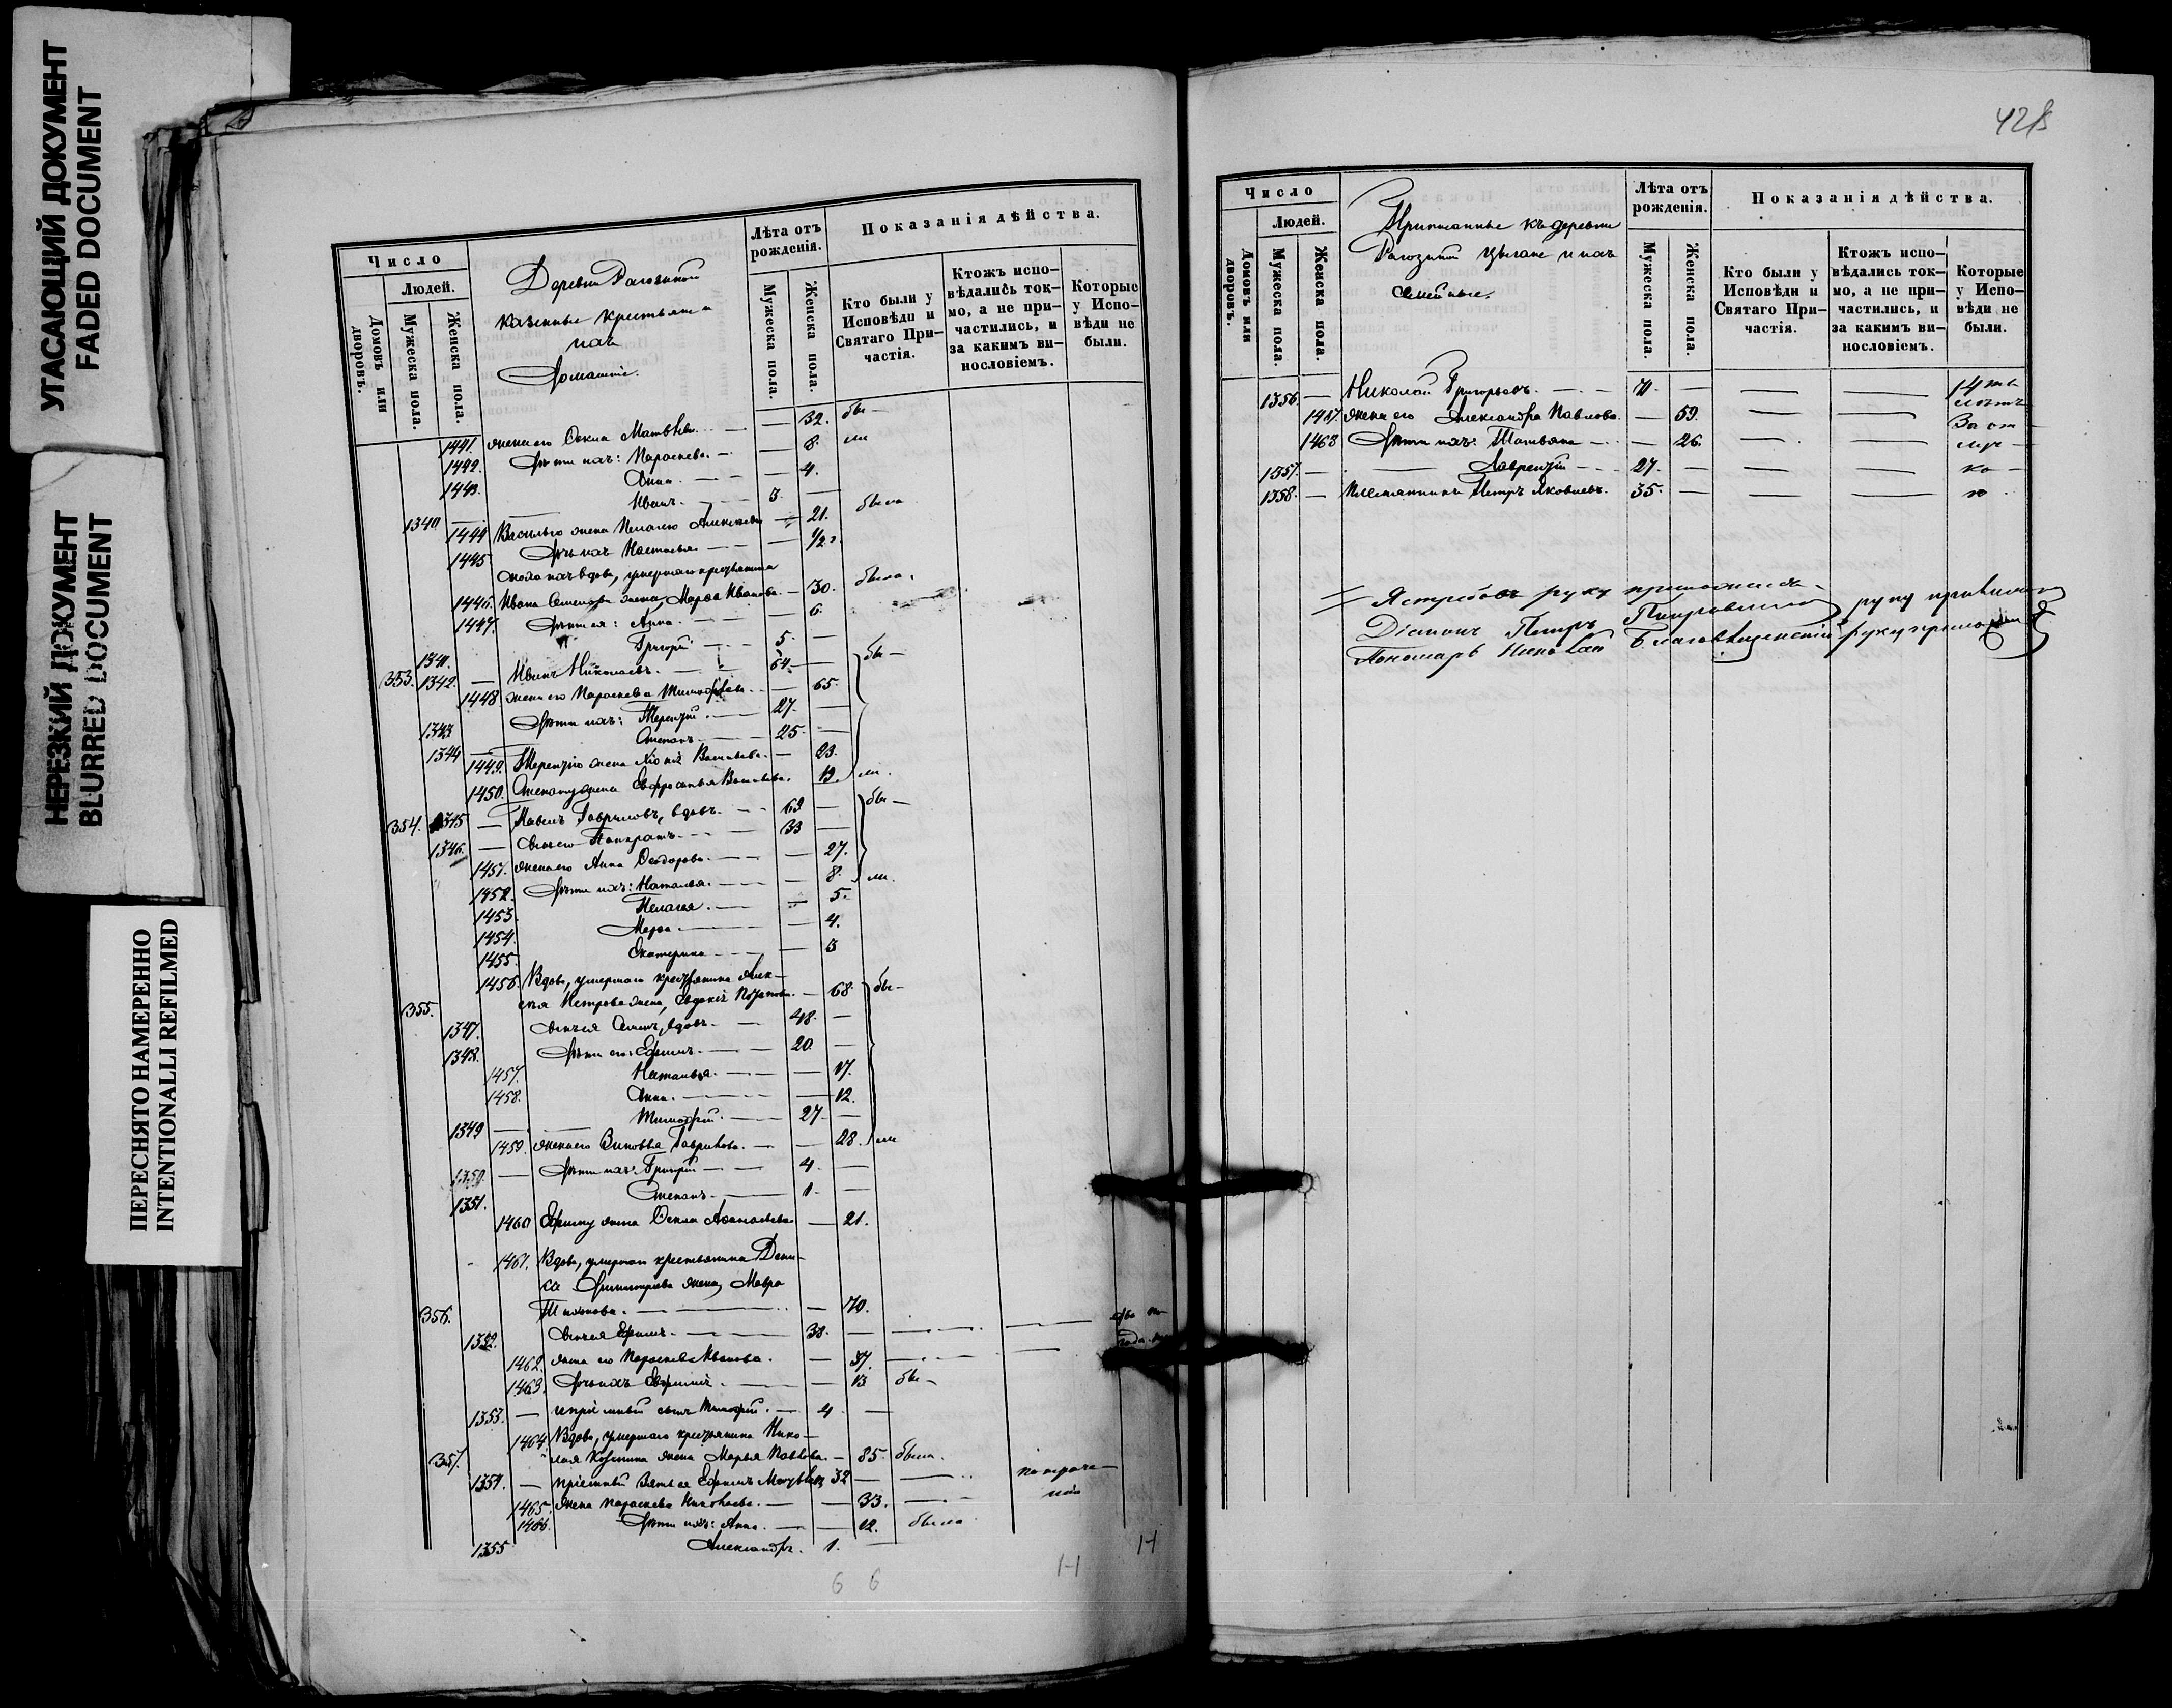 УГАСАЮЩИЙ ДОКУМЕНТ
FADED DOCUMENT
НЕРЕЗКИЙ ДОКУМЕНТ
BLURRED DOCUMENT
ПЕРЕСНЯТО НАМЕРЕННО
INTENTIONALLI REFILMED
Число
Людей.
Домовъ или дворовъ.
Мужеска пола.
Женска пола.
Деревни
казенные крестьяне и
ихъ
домашніе.
Лѣта отъ рожденія.
Мужеска пола.
Женска пола.
Показанія дѣйства.
Кто были у Исповѣди и Святаго Причастія.
Ктожъ исповѣдались токмо, а не причастились, и за какимъ винословіемъ.
Которые у Исповѣди не были.
1441. жена его Матвѣева. — 32. бы —
1442. Дѣти ихъ: Параскева — 8. ли
1443. Анна. — 4.
1340 Иванъ. — 3. —
1444 Василья жена Пелагея Алексѣева — 21. была
1445 Дочь ихъ Настасья — 1/2 г
вдова, умершаго крестьянина
1446. Ивана Семенова жена, Марѳа Иванова. — 30. была.
1447. Дѣти ея: Анна. — 6.
1341. Григорій — 5. —
353. 1342. — Иванъ Николаевъ. — 64. — бы —
1448 жена его Параскева Тимофѣева. — 65.
1343 Дѣти ихъ: Терентій. — 27. —
1344 — Степанъ. — 25. —
1449. Терентію жена Васильева. — 23.
1450. Степану жена Евфросинья Васильева. 19. ли.
354. 1345 — Павелъ Гавриловъ, вдовъ. — 69 — бы —
1346. — сынъ его Панкратъ. — 33 —
1451. жена его Анна Ѳеодорова. — 27.
1452. Дѣти ихъ: Наталья. — 8. ли.
1453 Пелагея. — 5.
1454. Марѳа. — 4.
1455. Екатерина. — 3
1456. Вдова, умершаго крестьянина Алек-
355. сѣя Петрова жена, Евдокія — 68 бы —
1347. сынъ ея Семенъ, вдовъ. — 48. —
1348. Дѣти его: Ефимъ. — 20. —
1457. Наталья. — 17.
1458. Анна. — 12.
1349 — Тимофей. — 27. —
1459. жена его Зиновья Гаврилова. — 28. ли
1350 — Дѣти ихъ: Григорій — 4. —
1351. Степанъ. — 1. —
1460 Ефиму жена Афанасьева — 21.
1461. Вдова, умершаго крестьянина Дени-
са Димитріева жена, Мавра
356. — 70.
1352. сынъ ея Ефимъ. — 38. —
1462. жена его Параскева Иванова. — 37.
1463. Дочь ихъ — 13 бы —
1353. — сынъ Тимофей. — 4 —
1464. Вдова, умершаго крестьянина Нико-
357. лая жена Марья Павлова — 85. была.
1354. — пріемный зять ея Ефимъ Матвѣевъ 32 —
1465. жена Параскева Николаева. — 33.
1466. Дѣти ихъ: Анна. — 12. была
1355 Александръ. 1. —
6 6
428
Число
Людей.
Домовъ или дворовъ.
Мужеска пола.
Женска пола.
Приписанные къ деревни
цыгане и ихъ
семейные.
Лѣта отъ рожденія.
Мужеска пола.
Женска пола.
Показанія дѣйства.
Кто были у Исповѣди и Святаго Причастія.
Ктожъ исповѣдались токмо, а не причастились, и за какимъ винословіемъ.
Которые у Исповѣди не были.
1356. — Николай Григорьевъ. — 71. — 14 ть
1467. жена его Александра Павлова. — 59. лѣтъ
1468 Дѣти ихъ: Татьяна — 26. За от-
1357. — Лаврентій — 27. — луч-
1358. — племянникъ Петръ Яковлевъ. 35. — ко-
ю
Ястребовъ руку приложилъ
Діаконъ Петръ руку приложилъ
Пономарь Николай Благовѣщенскій руку приложилъ